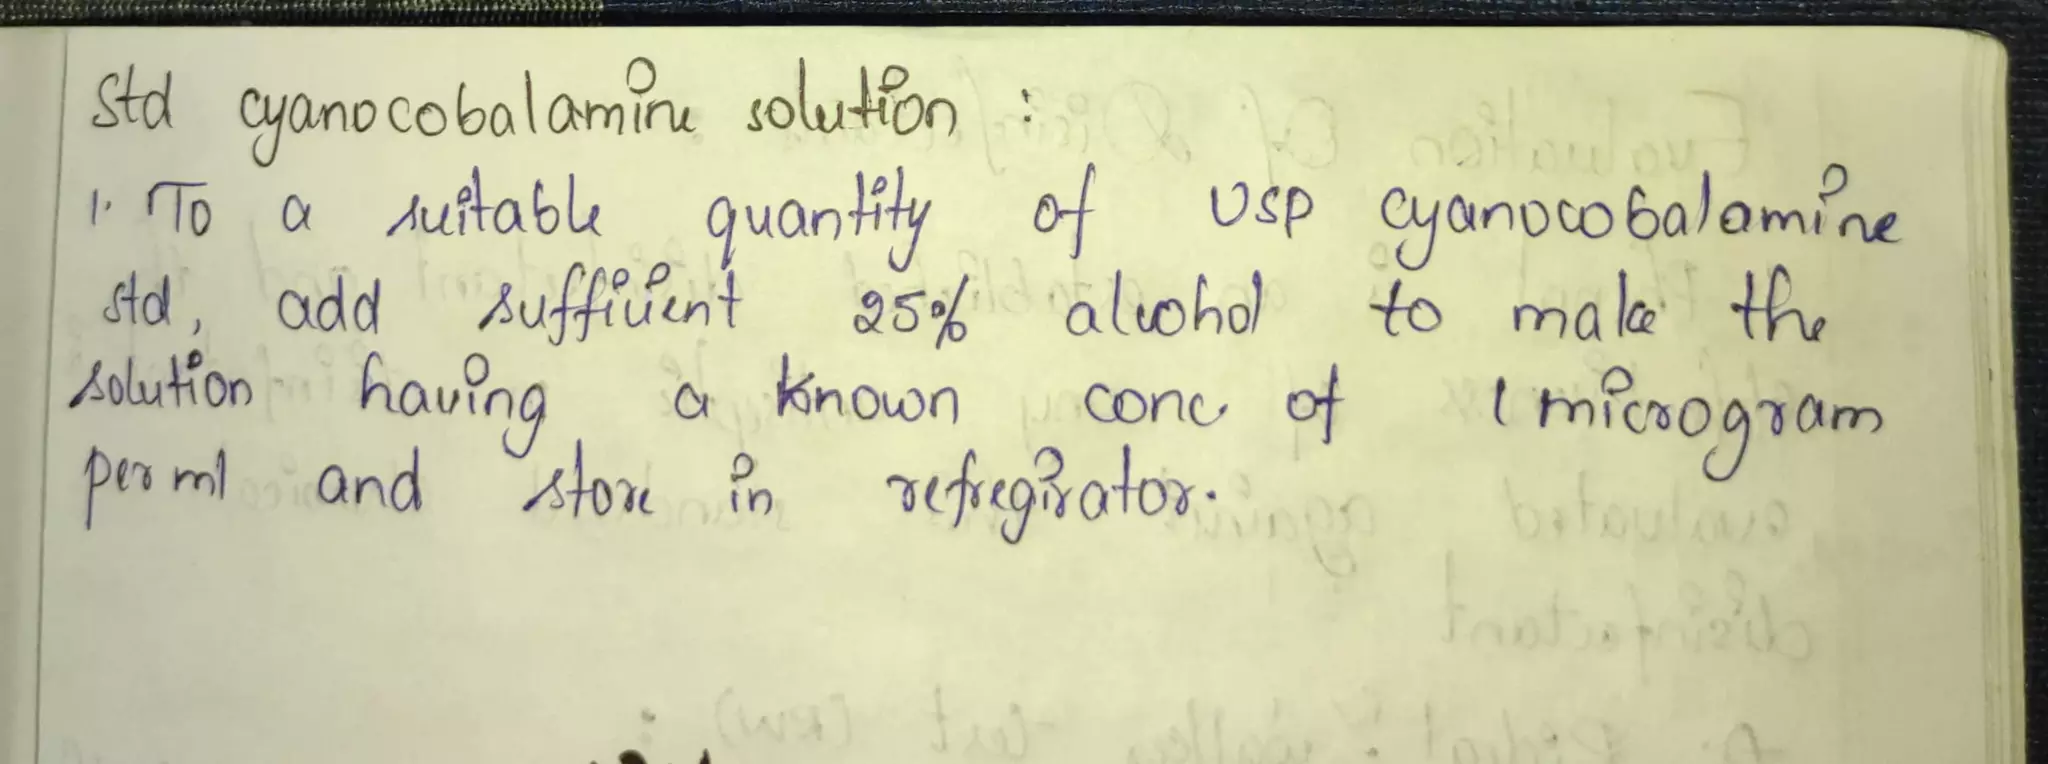 Std cyanocobalamine solution :
1. To a suitable quantity of USP cyanocobalamine
std, add sufficient 25% alcohol to make the
solution having a known conc of 1 microgram
per ml and store in refregirator.